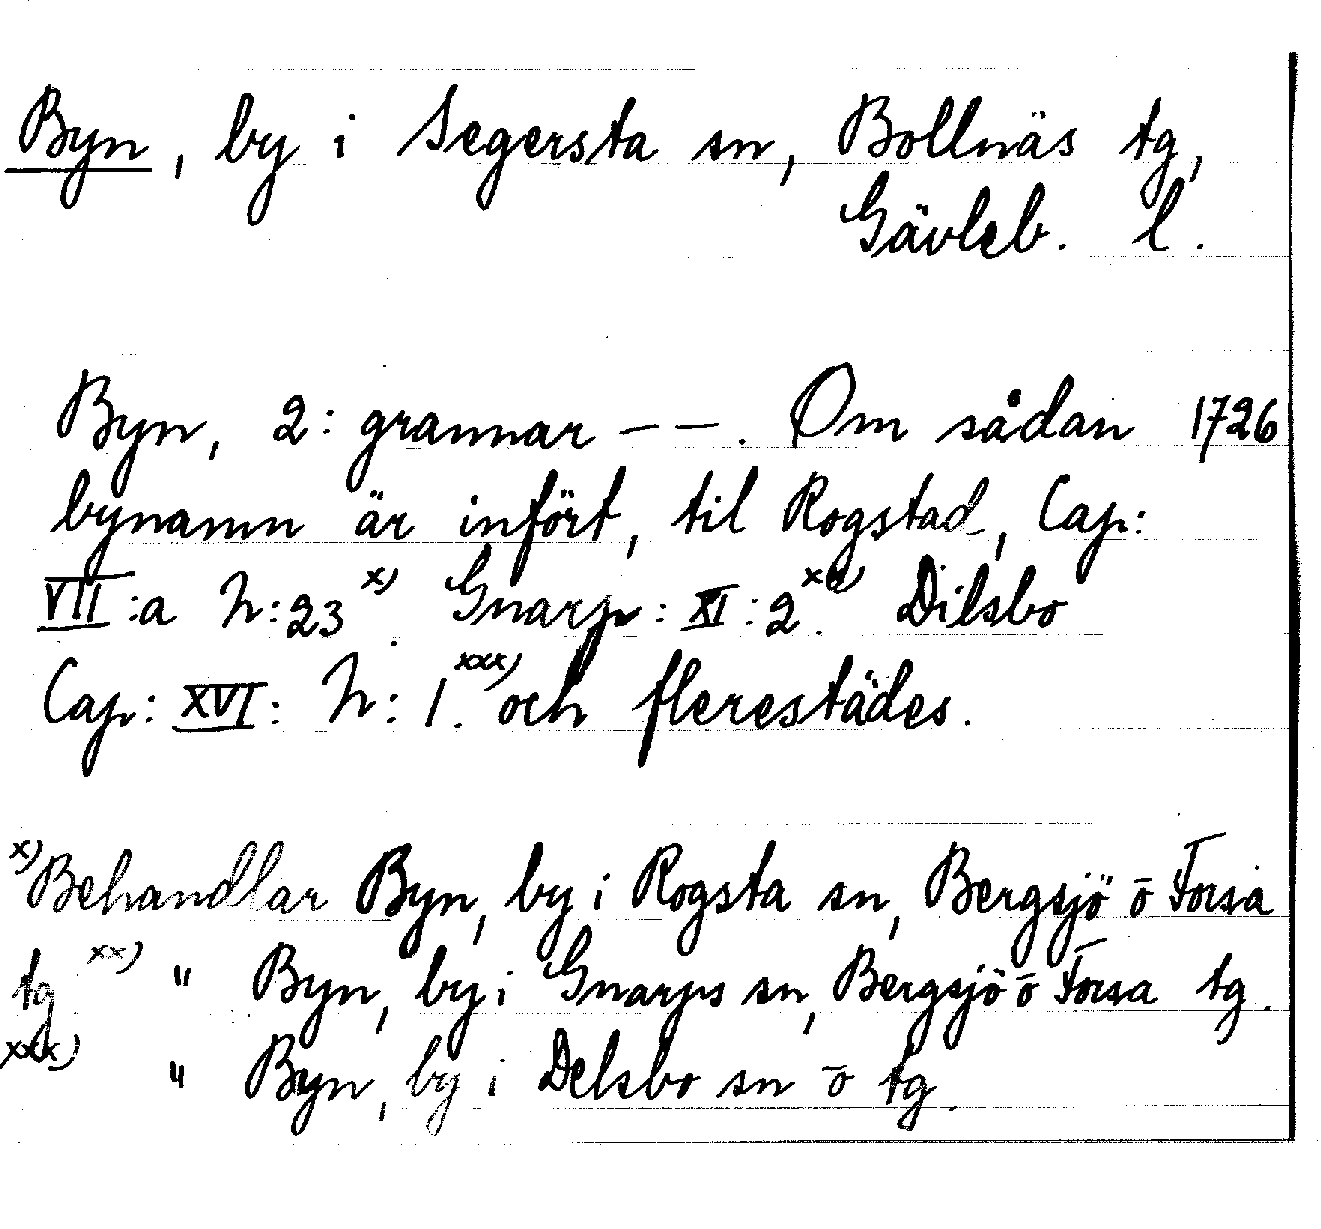 Byn, by i Segersta sn, Bollnäs tg,
Gävleb. l.
Byn, 2: grannar – –. Om sådan 1726
bynamn är infört, til Rogstad, Cap:
VII:a N:23 x). Gnarp: XI:2. xx) Dilsbo
Cap: XVI: N: 1. xxx) och flerestädes.
x) Behandlar Byn, by i Rogsta sn, Bergsjö ō Forsa
tg xx) " Byn, by i Gnarps sn, Bergsjö ō Forsa tg.
xxx) " Byn, by i Delsbo sn ō tg.